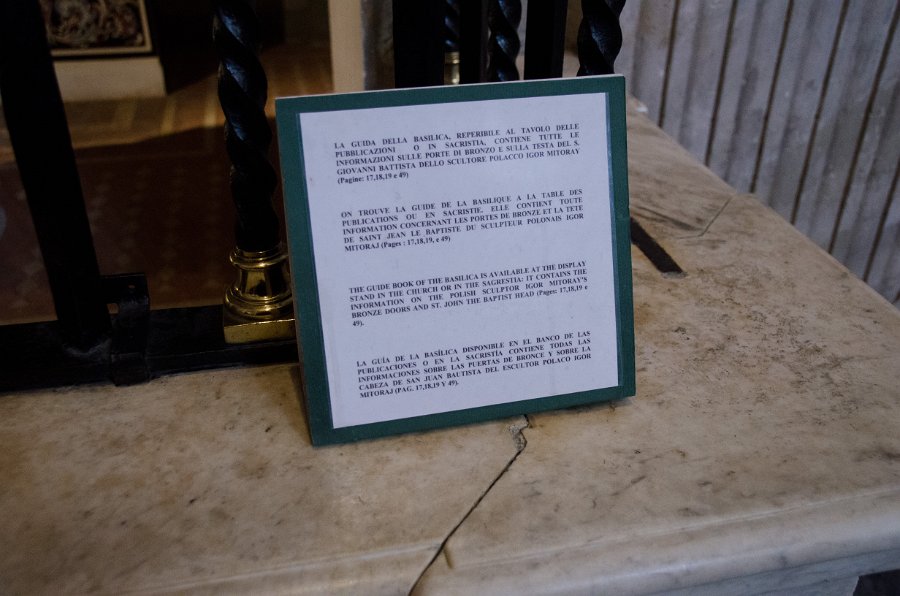 LA GUIDA DELLA BASILICA, REPERIBILE AL TAVOLO DELLE
PUBBLICAZIONI O IN SACRISTIA, CONTIENE TUTTE LE
INFORMAZIONI SULLE PORTE DI BRONZO E SULLA TESTA DEL S.
GIOVANNI BATTISTA DELLO SCULTORE POLACCO IGOR MITORAY
(Pagine: 17,18,19 e 49)
ON TROUVE LA GUIDE DE LA BASILIQUE A LA TABLE DES
PUBLICATIONS OU EN SACRISTIE. ELLE CONTIENT TOUTE
INFORMATION CONCERNANT LES PORTES DE BRONZE ET LA TETE
DE SAINT JEAN LE BAPTISTE DU SCULPTEUR POLONAIS IGOR
MITORAJ (Pages : 17,18,19, e 49)
THE GUIDE BOOK OF THE BASILICA IS AVAILABLE AT THE DISPLAY
STAND IN THE CHURCH OR IN THE SAGRESTIA: IT CONTAINS THE
INFORMATION ON THE POLISH SCULPTOR IGOR MITORAY'S
BRONZE DOORS AND ST. JOHN THE BAPTIST HEAD (Pages: 17,18,19 e
49).
LA GUÍA DE LA BASÍLICA DISPONIBLE EN EL BANCO DE LAS
PUBLICACIONES O EN LA SACRISTÍA CONTIENE TODAS LAS
INFORMACIONES SOBRE LAS PUERTAS DE BRONCE Y SOBRE LA
CABEZA DE SAN JUAN BAUTISTA DEL ESCULTOR POLACO IGOR
MITORAJ (PAG. 17,18,19 Y 49).